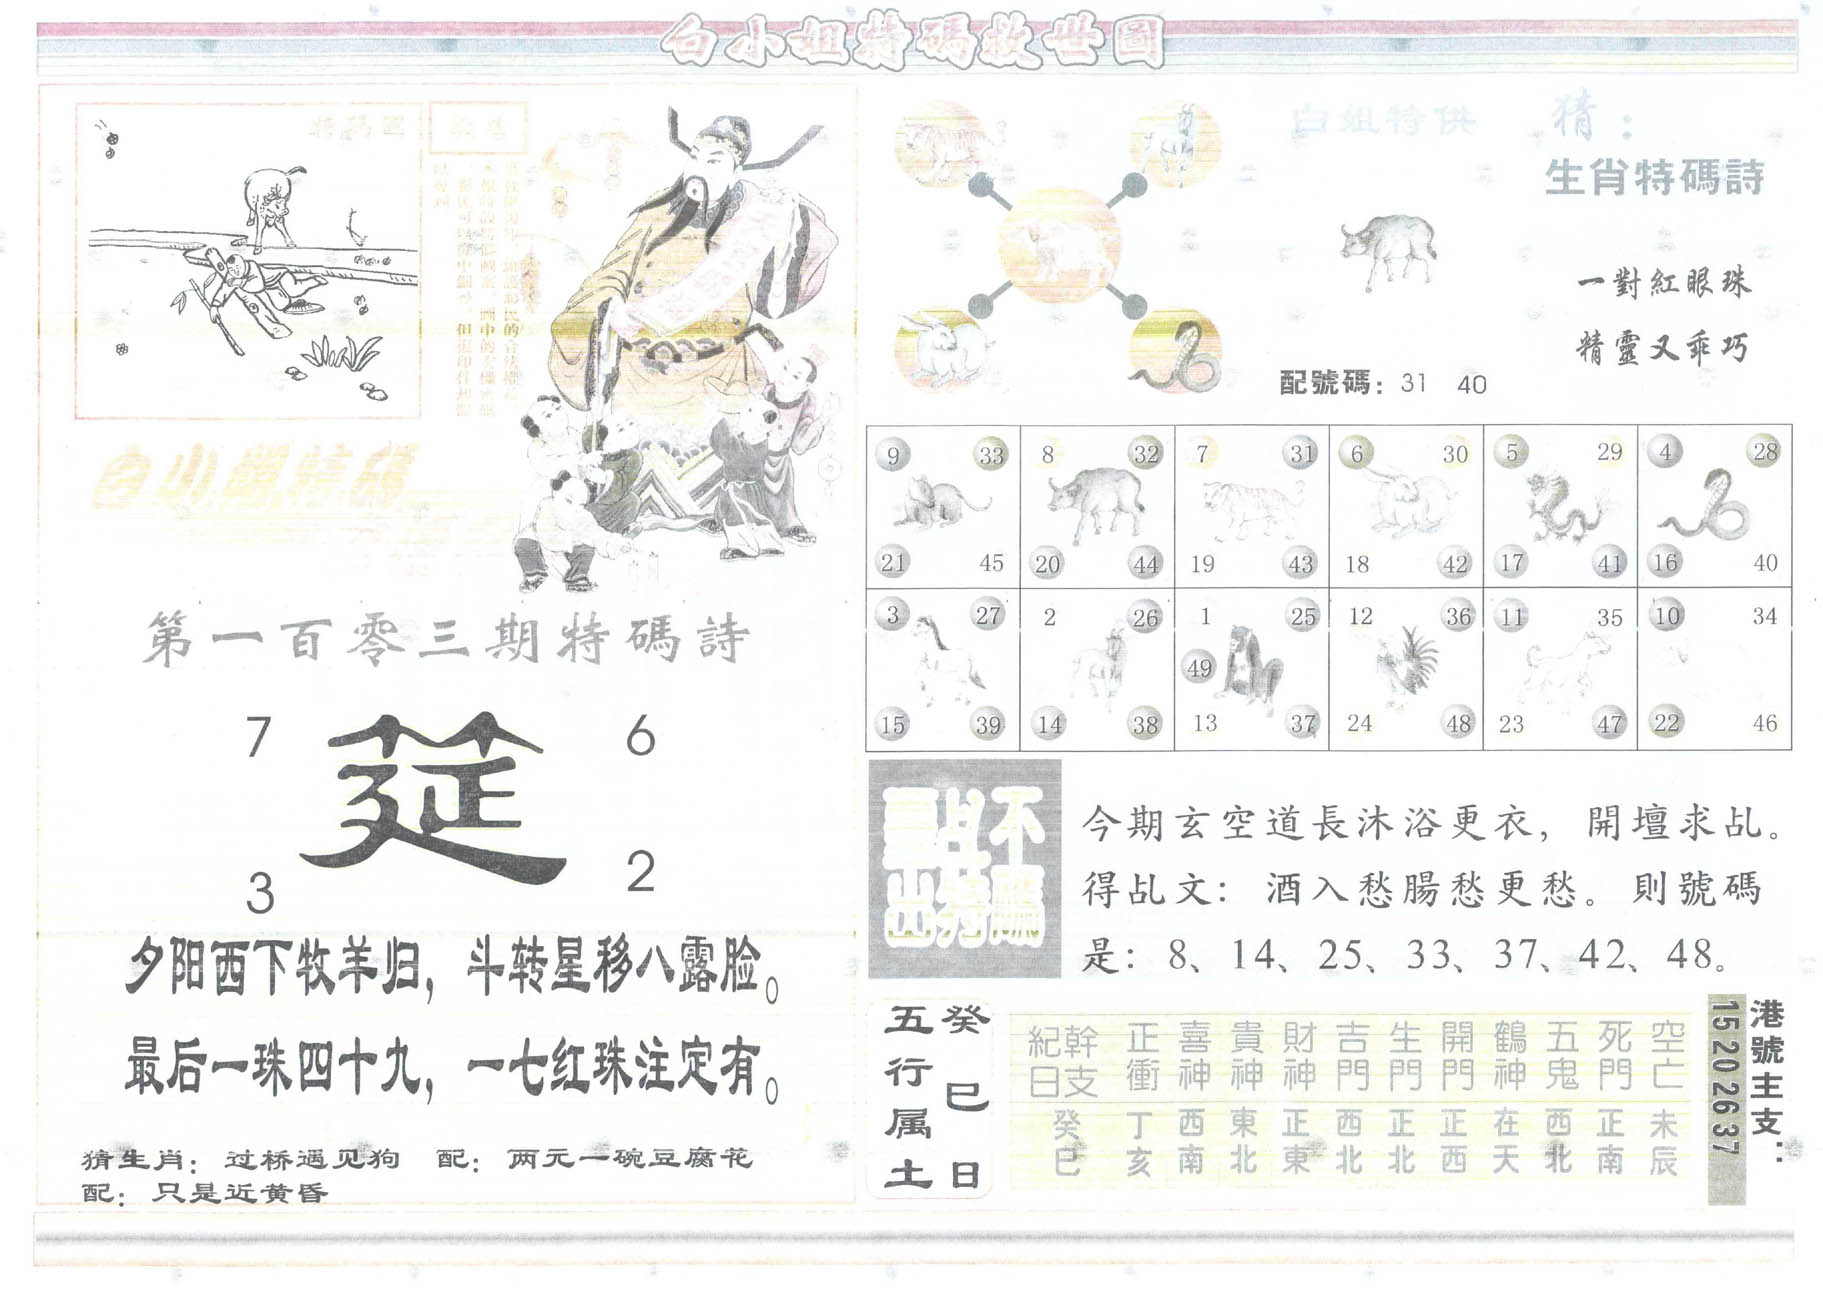 白小姐特碼救世圖
特碼圖
白小姐特碼
第一百零三期特碼詩
7 6
莛
3 2
夕阳西下牧羊归，斗转星移八露脸。
最后一珠四十九，一七红珠注定有。
猜生肖：过桥遇见狗 配：两元一碗豆腐花
配：只是近黄昏
白姐特供 猜：
生肖特碼詩
一對紅眼珠
精靈又乖巧
配號碼：31 40
9 33 8 32 7 31 6 30 5 29 4 28
21 45 20 44 19 43 18 42 17 41 16 40
3 27 2 26 1 25 12 36 11 35 10 34
49
15 39 14 38 13 37 24 48 23 47 22 46
不靈
乩特
靈出
今期玄空道長沐浴更衣，開壇求乩。
得乩文：酒入愁腸愁更愁。則號碼
是：8、14、25、33、37、42、48。
癸巳日
五行属土
幹支紀日 正衝 喜神 貴神 財神 吉門 生門 開門 鶴神 五鬼 死門 空亡
癸巳 丁亥 西南 東北 正東 西北 正北 正西 在天 西北 正南 未辰
港號主支：
15 20 26 37